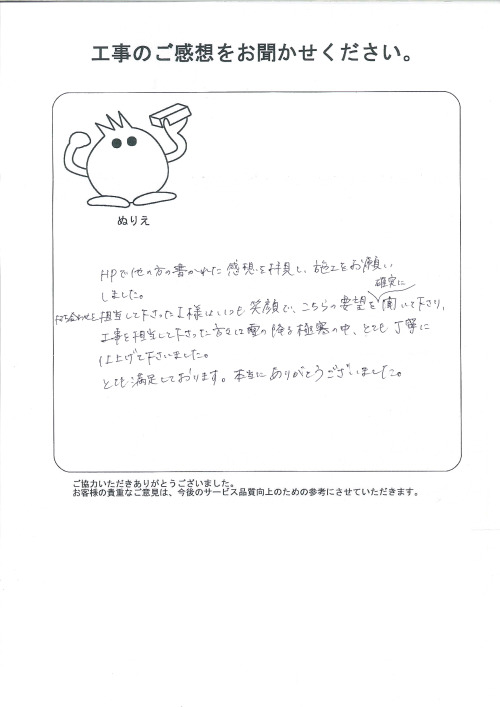 工事のご感想をお聞かせください。
ぬりえ
HPで他の方の書かれた感想を拝見し、施工をお願い
しました。
打ち合わせを担当して下さったI様はいつも笑顔で、こちらの要望を確実に聞いて下さり、
工事を担当して下さった方々は雪の降る極寒の中、とても丁寧に
仕上げて下さいました。
とても満足しております。本当にありがとうございました。
ご協力いただきありがとうございました。
お客様の貴重なご意見は、今後のサービス品質向上のための参考にさせていただきます。